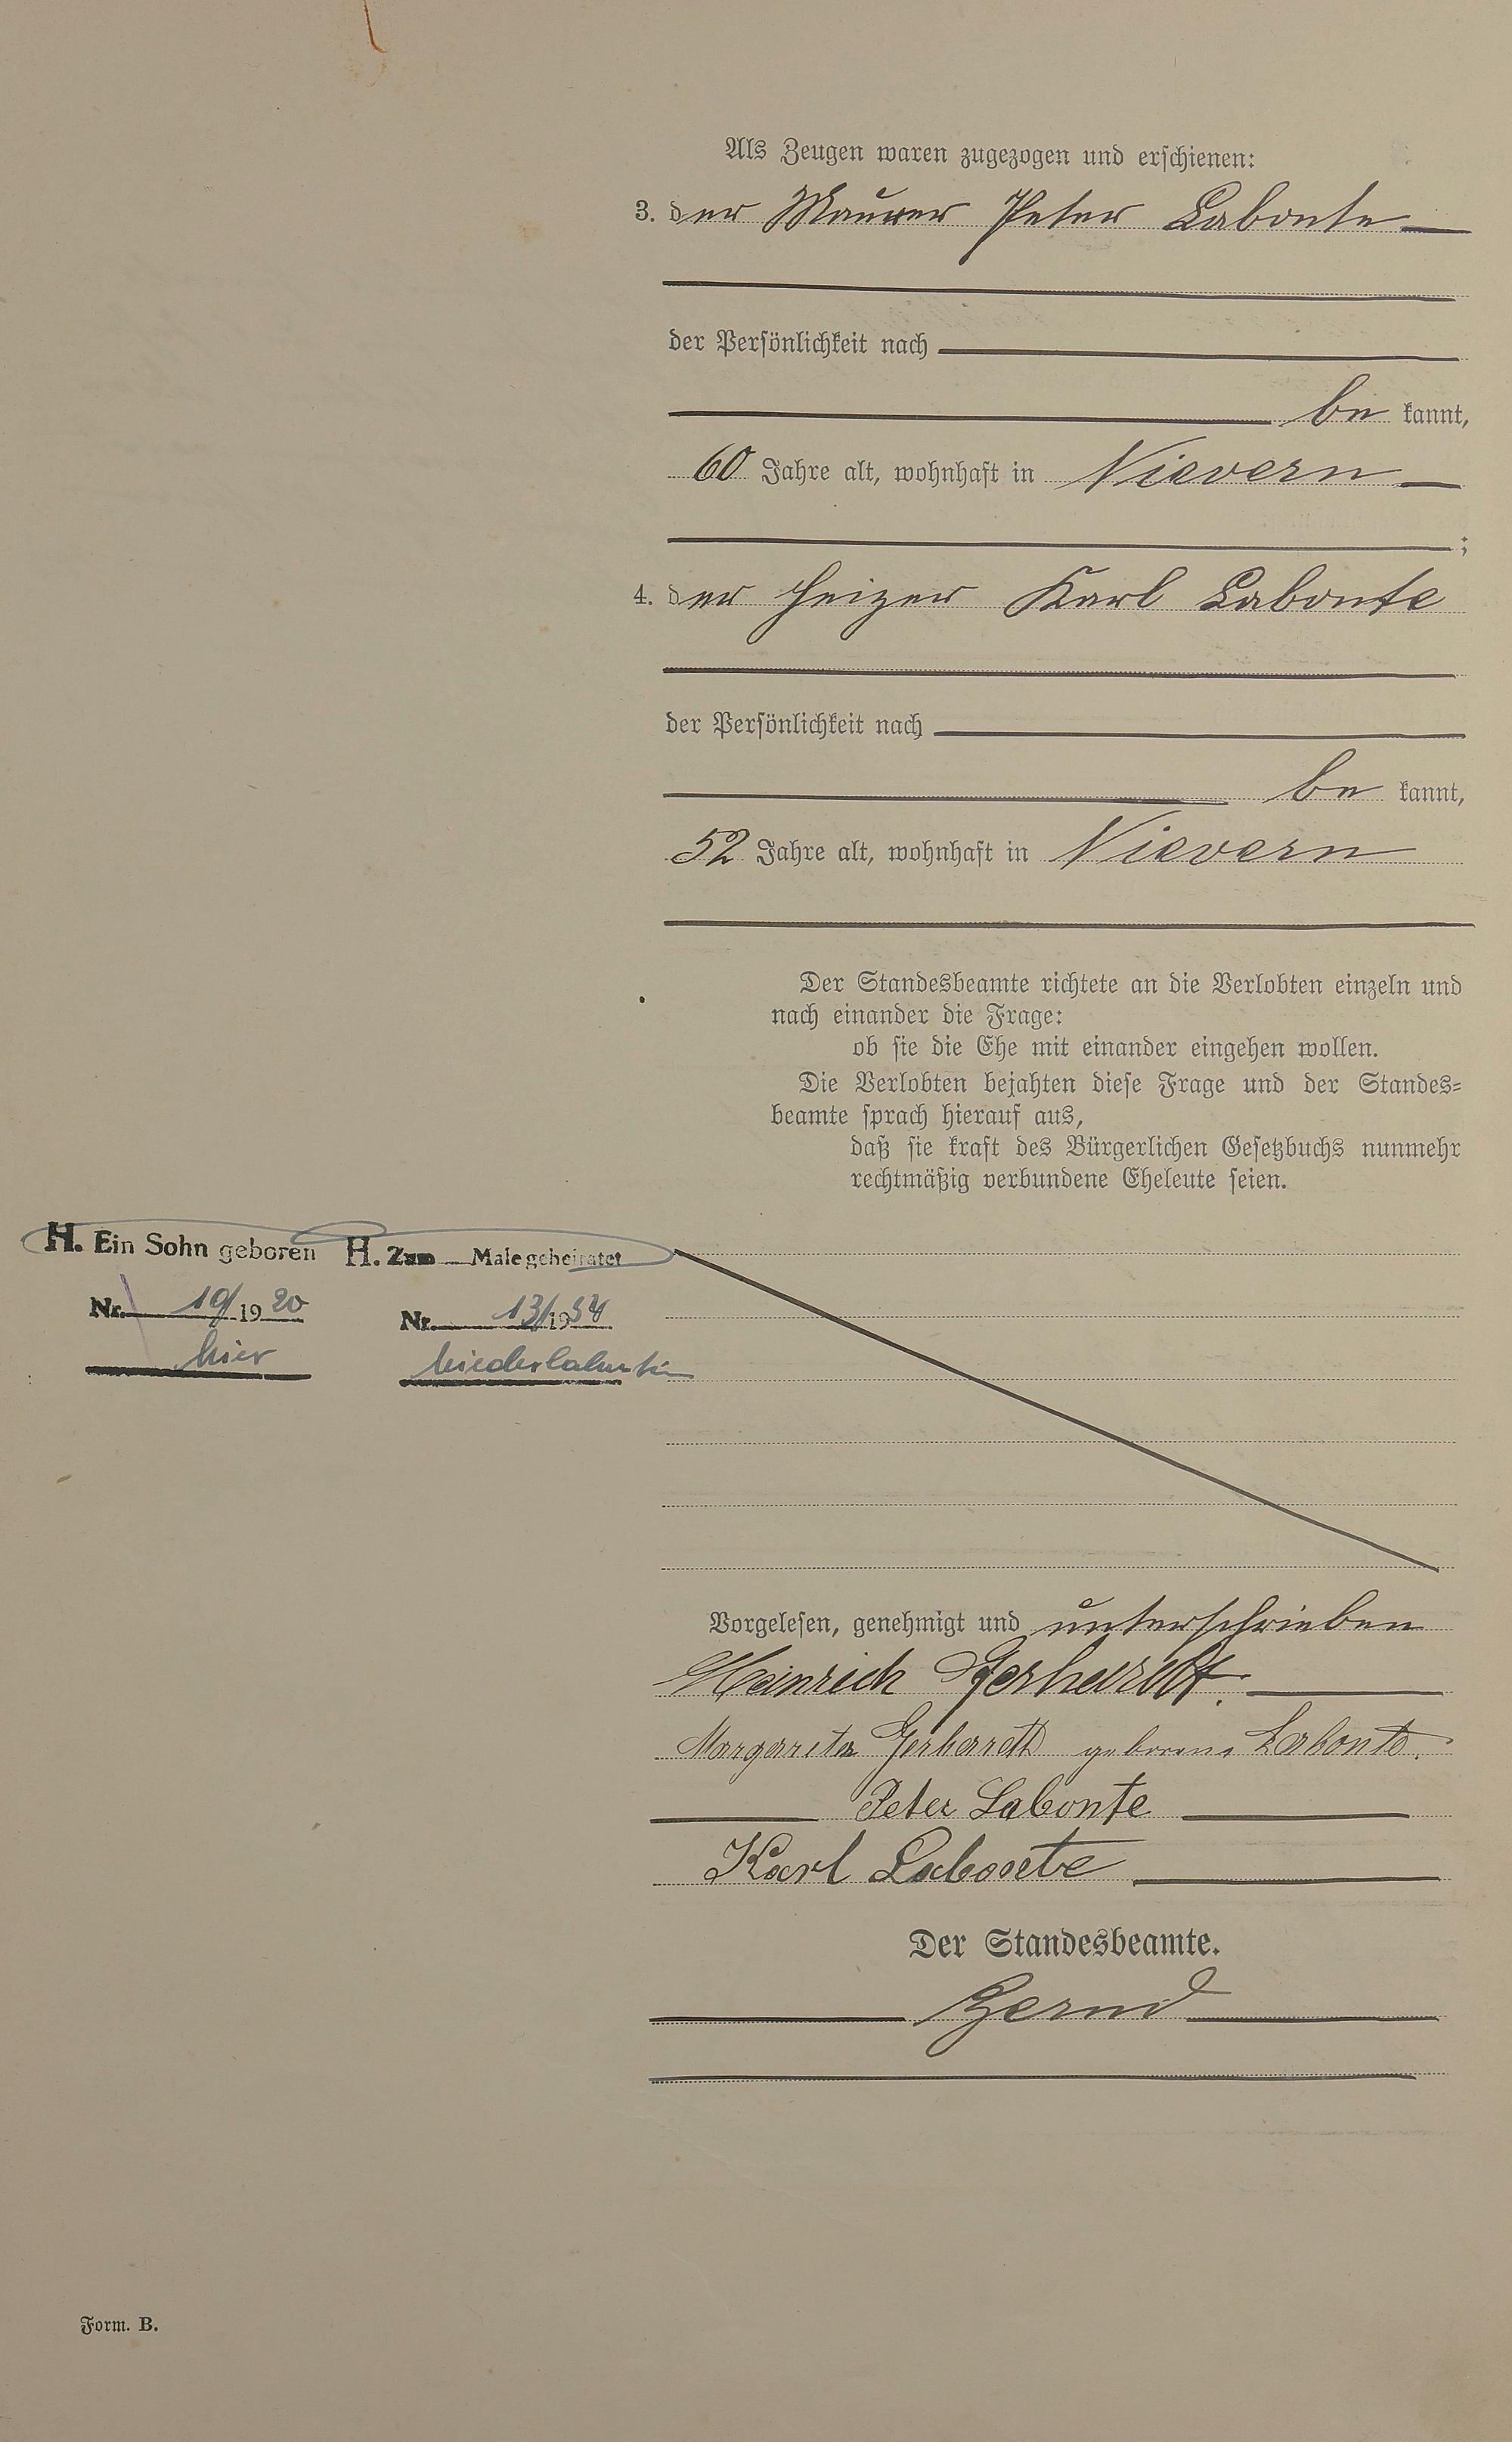 Als Zeugen waren zugezogen und erschienen:
3. der Maurer Peter Labonte
der Persönlichkeit nach
be kannt,
60 Jahre alt, wohnhaft in Nievern
;
4. der Heizer Karl Labonte
der Persönlichkeit nach
be kannt,
52 Jahre alt, wohnhaft in Nievern
Der Standesbeamte richtete an die Verlobten einzeln und
nach einander die Frage:
ob sie die Ehe mit einander eingehen wollen.
Die Verlobten bejahten diese Frage und der Standes-
beamte sprach hierauf aus,
daß sie kraft des Bürgerlichen Gesetzbuchs nunmehr
rechtmäßig verbundene Eheleute seien.
H. Ein Sohn geboren
Nr. 19/1920
hier
H. Zum Male geheiratet
Nr. 13/1954
Niederlahnstein
Vorgelesen, genehmigt und unterschrieben
Heinrich Gerhardt.
Margareta Gerhardt geborene Labonte.
Peter Labonte
Karl Labonte
Der Standesbeamte.
Form. B.